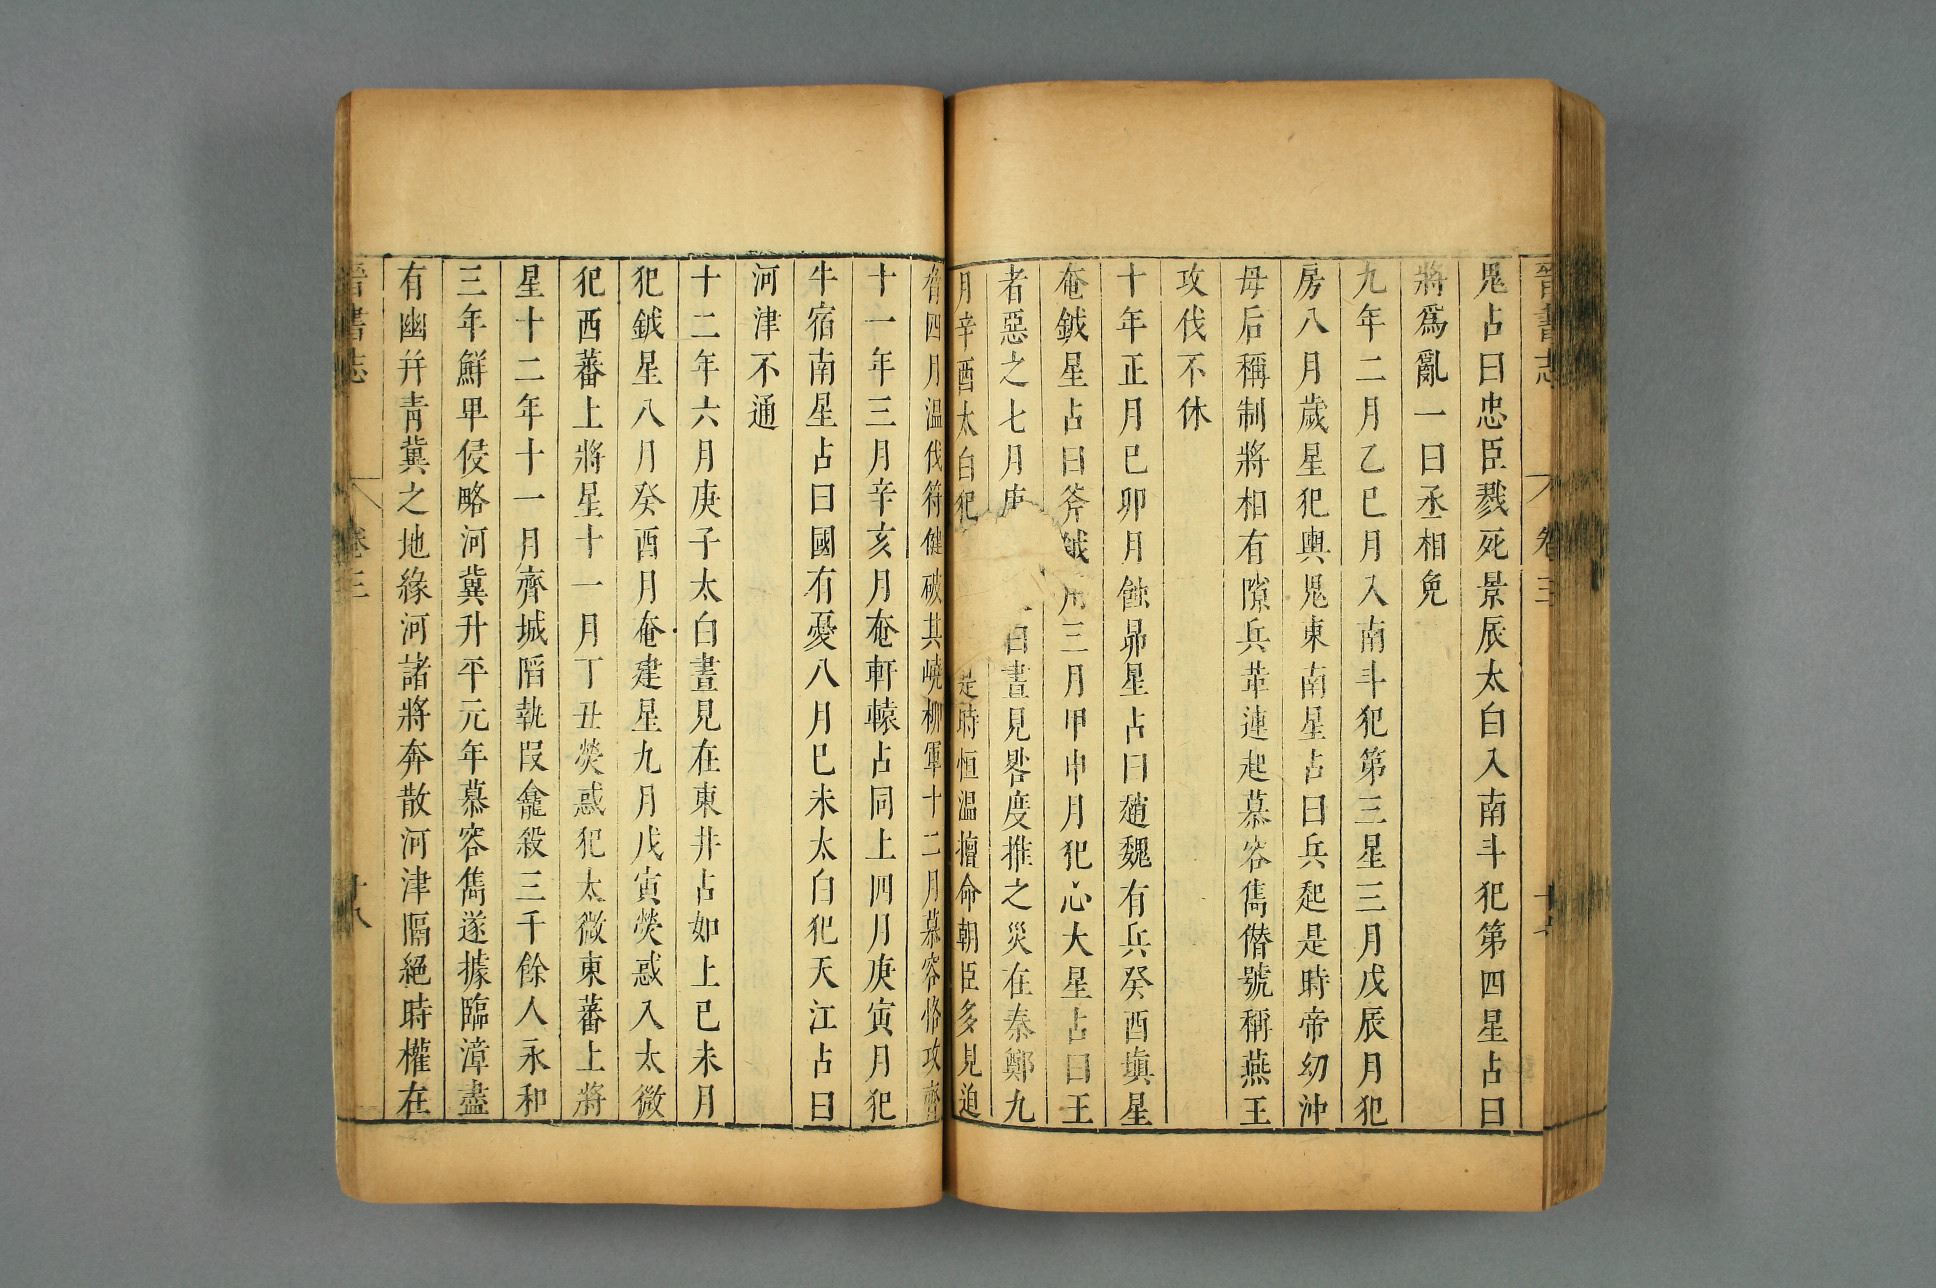 晉書志 卷三
鬼占曰忠臣戮死景辰太白入南斗犯第四星占曰
將爲亂一曰丞相免
九年二月乙巳月入南斗犯第三星三月戊辰月犯
房八月歲星犯輿鬼東南星占曰兵起是時帝幼沖
母后稱制將相有隙兵革連起慕容儁僭號稱燕王
攻伐不休
十年正月己卯月蝕昴星占曰趙魏有兵癸酉填星
奄鉞星占曰斧鉞用三月甲申月犯心大星占曰王
者惡之七月庚 白晝見晷度推之災在秦鄭九
月辛酉太白犯 是時恒溫擅命朝臣多見迫
脅四月溫伐符健破其嶢柳軍十二月慕容恪攻齊
十一年三月辛亥月奄軒轅占同上四月庚寅月犯
牛宿南星占曰國有憂八月己未太白犯天江占曰
河津不通
十二年六月庚子太白晝見在東井占如上己未月
犯鉞星八月癸酉月奄建星九月戊寅熒惑入太微
犯西蕃上將星十一月丁丑熒惑犯太微東蕃上將
星十二年十一月齊城陷執段龕殺三千餘人永和
三年鮮卑侵略河冀升平元年慕容儁遂據臨漳盡
有幽幷青冀之地緣河諸將奔散河津隔絕時權在
晉書志 卷三 十八